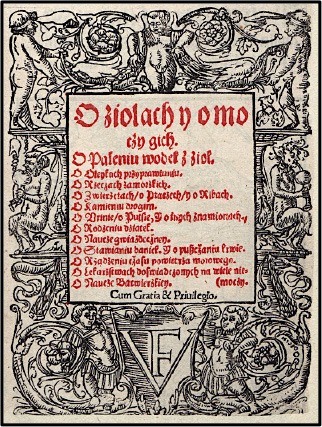 O ziolach y o mo
czy gich.
O Paleniu wodek z ziol.
O Oleykach przyprawianiu.
O Rzeczach zamorskich.
O Zwierzętach / o Ptaczech / y o Ribach.
O Kamieniu drogim.
O Vrinie / o Pulsie / y o inych znamionach /
O Rodzeniu dziatek.
O Nauce gwiazdeczney.
O Stawianiu baniek. Y o pusczaniu krwie.
O Rządzeniu czasu powietrza morowego.
O Lekarstwach doswiadczonych na wiele nie-
O Nauce Barwierskiey. (moczy.
Cum Gratia & Priuilegio.
FV